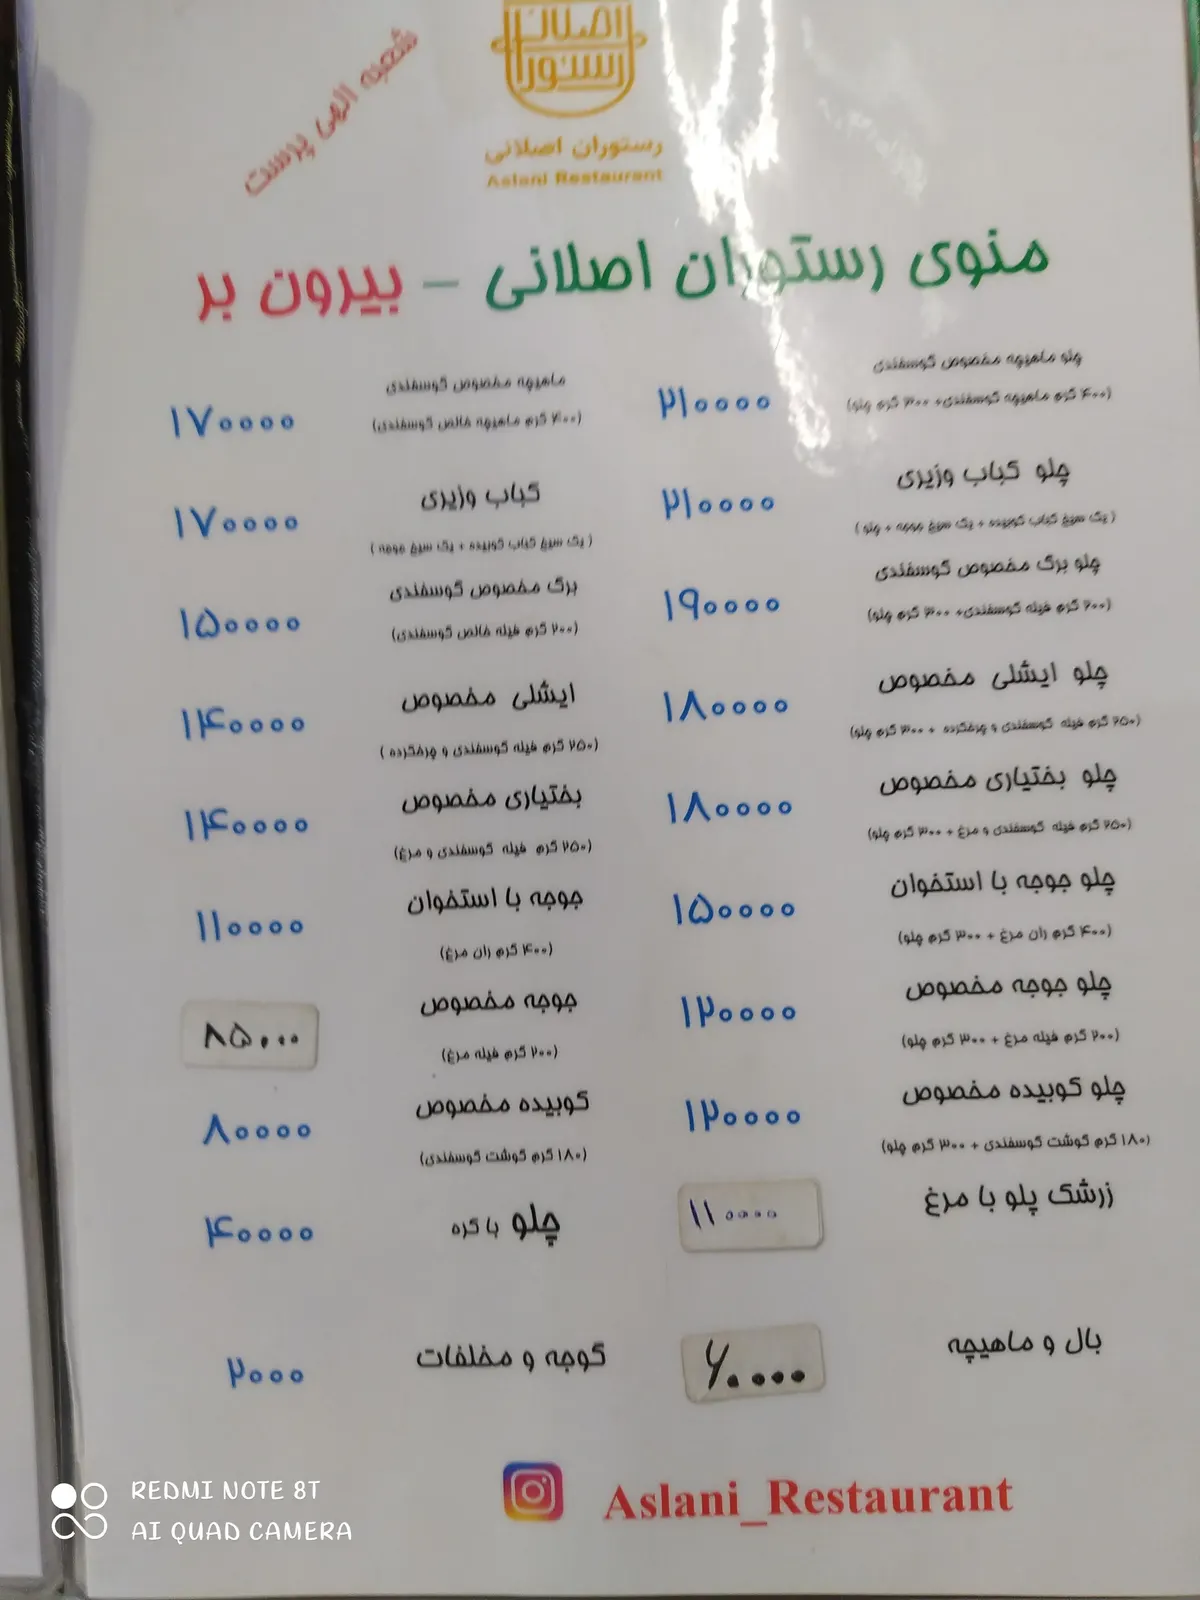 اصلانی
رستوران
شعبه الهی پرست
رستوران اصلانی
Aslani Restaurant
منوی رستوران اصلانی - بیرون بر
چلو ماهیچه مخصوص گوسفندی
(۴۰۰ گرم ماهیچه گوسفندی+ ۳۰۰ گرم چلو)
۲۱۰۰۰۰
چلو کباب وزیری
(یک سیخ کباب کوبیده + یک سیخ جوجه + چلو)
۲۱۰۰۰۰
چلو برگ مخصوص گوسفندی
(۲۰۰ گرم فیله گوسفندی+ ۳۰۰ گرم چلو)
۱۹۰۰۰۰
چلو ایشلی مخصوص
(۲۵۰ گرم فیله گوسفندی و چرخکرده + ۳۰۰ گرم چلو)
۱۸۰۰۰۰
چلو بختیاری مخصوص
(۲۵۰ گرم فیله گوسفندی و مرغ + ۳۰۰ گرم چلو)
۱۸۰۰۰۰
چلو جوجه با استخوان
(۴۰۰ گرم ران مرغ + ۳۰۰ گرم چلو)
۱۵۰۰۰۰
چلو جوجه مخصوص
(۲۰۰ گرم فیله مرغ + ۳۰۰ گرم چلو)
۱۲۰۰۰۰
چلو کوبیده مخصوص
(۱۸۰ گرم گوشت گوسفندی + ۳۰۰ گرم چلو)
۱۲۰۰۰۰
زرشک پلو با مرغ
۱۱۰۰۰۰
بال و ماهیچه
۶۰۰۰۰
ماهیچه مخصوص گوسفندی
(۴۰۰ گرم ماهیچه خالص گوسفندی)
۱۷۰۰۰۰
کباب وزیری
(یک سیخ کباب کوبیده + یک سیخ جوجه)
۱۷۰۰۰۰
برگ مخصوص گوسفندی
(۲۰۰ گرم فیله خالص گوسفندی)
۱۵۰۰۰۰
ایشلی مخصوص
(۲۵۰ گرم فیله گوسفندی و چرخکرده)
۱۴۰۰۰۰
بختیاری مخصوص
(۲۵۰ گرم فیله گوسفندی و مرغ)
۱۴۰۰۰۰
جوجه با استخوان
(۴۰۰ گرم ران مرغ)
۱۱۰۰۰۰
جوجه مخصوص
(۲۰۰ گرم فیله مرغ)
۸۵۰۰۰
کوبیده مخصوص
(۱۸۰ گرم گوشت گوسفندی)
۸۰۰۰۰
چلو با کره
۴۰۰۰۰
گوجه و مخلفات
۲۰۰۰
Aslani_Restaurant
REDMI NOTE 8T
AI QUAD CAMERA